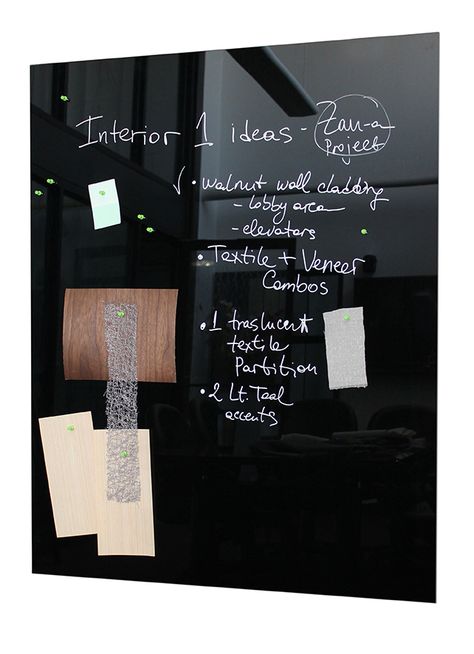 Interior 1 ideas - Zan-a
Project
✓ • Walnut wall cladding
- lobby area
- elevators
• Textile + Veneer
Combos
• 1 traslucent
textile
Partition
• 2 Lt. Teal
accents